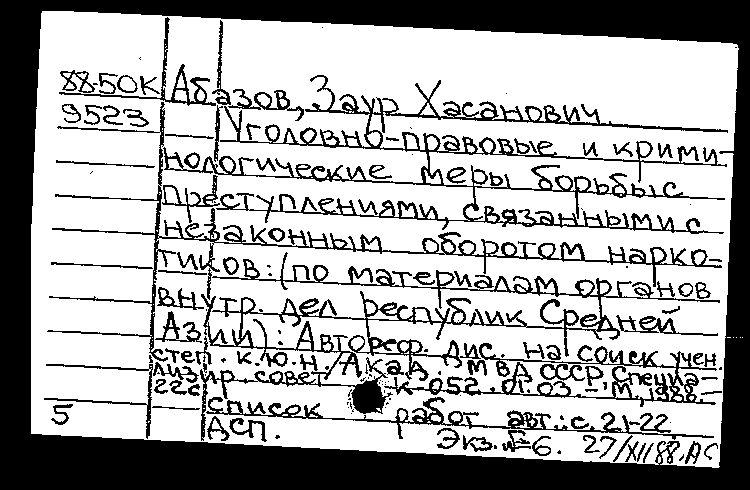 88-50К Абазов, Заур Хасанович.
9523 Уголовно-правовые и крими-
нологические меры борьбы с
преступлениями, связанными с
незаконным оборотом нарко-
тиков: (по материалам органов
внутр. дел республик Средней
Азии): Автореф. дис. на соиск учен.
степ. к.ю.н. / Акад. МВД СССР, Специа-
лизир. совет К-052.01.03. - М., 1988. -
22с
5 список работ авт.: с. 21-22
ДСП. Экз. №6. 27/XII88. АС